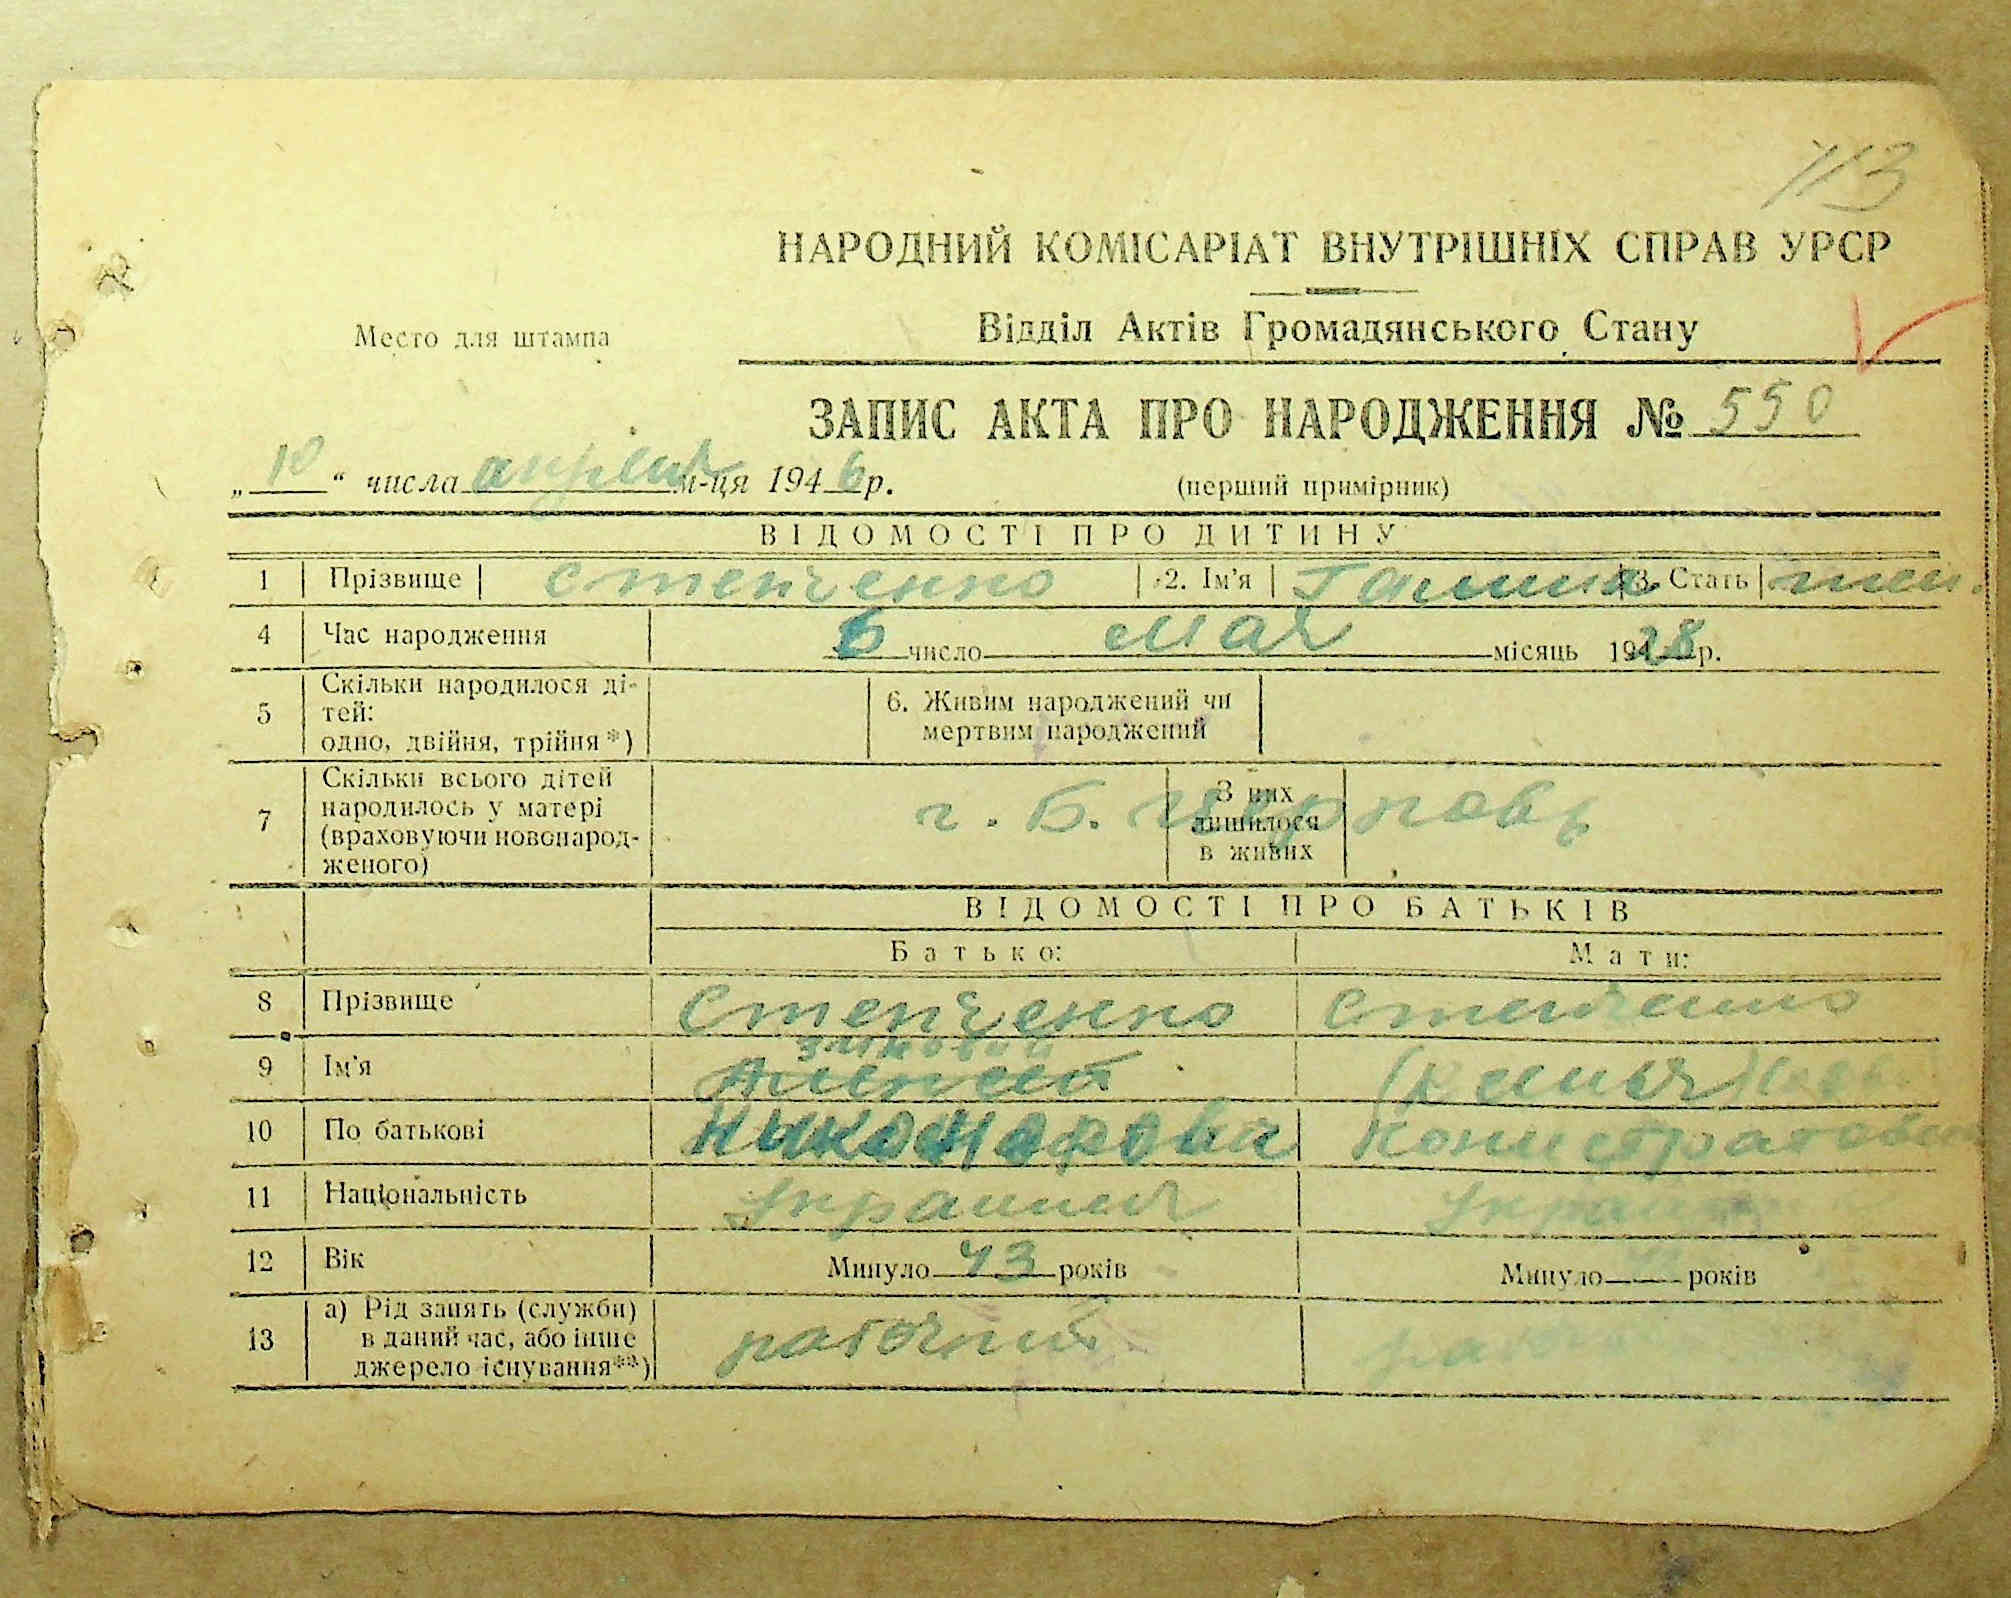 113
НАРОДНИЙ КОМІСАРІАТ ВНУТРІШНІХ СПРАВ УРСР
Место для штампа
Відділ Актів Громадянського Стану
ЗАПИС АКТА ПРО НАРОДЖЕННЯ № 550
„10“ числа апреля м-ця 1946 р.
(перший примірник)
ВІДОМОСТІ ПРО ДИТИНУ
1 Прізвище Степченко 2. Ім'я Галина 3. Стать жен.
4 Час народження 6 число мая місяць 1928 р.
5 Скільки народилося ді-
тей:
одно, двійня, трійня*)
6. Живим народжений чи
мертвим народжений
7 Скільки всього дітей
народилось у матері
(враховуючи новонарод-
женого)
З них
лишилося
в живих
г. Б. Церковь
ВІДОМОСТІ ПРО БАТЬКІВ
Батько: Мати:
8 Прізвище Степченко Степченко
9 Ім'я Зиновий Алексей
10 По батькові
11 Національність Украинец
12 Вік Минуло 43 років Минуло років
13 а) Рід занять (служби)
в даний час, або інше
джерело існування**)
рабочий